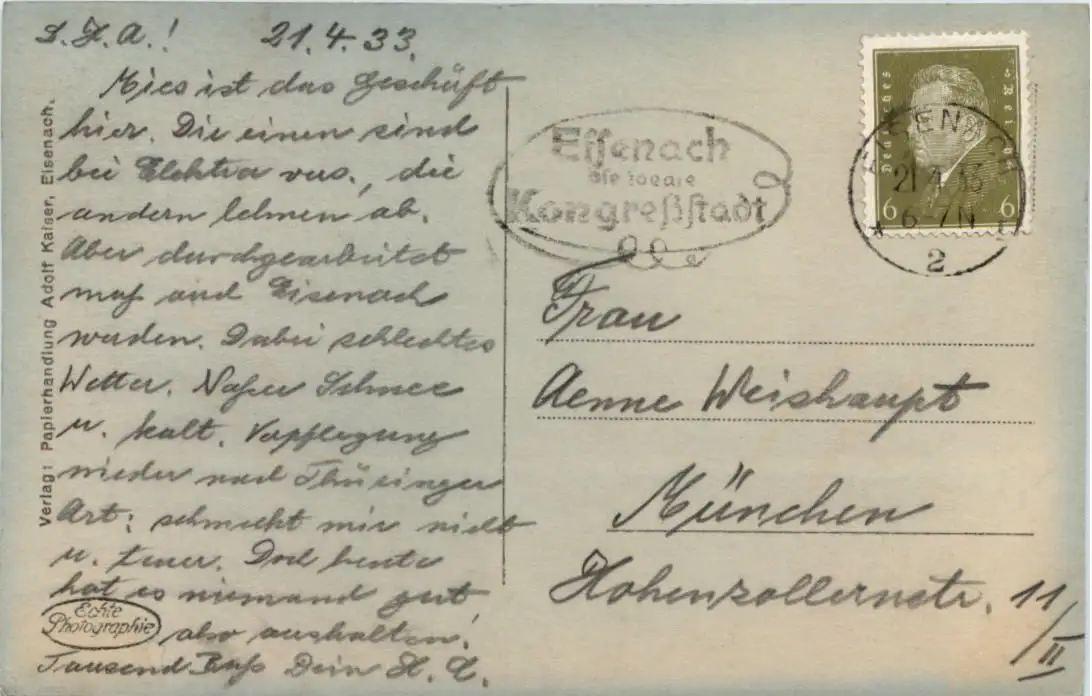 L. F. A.! 21.4.33.
Mies ist das Geschäft
hier. Die einen sind
bei Elektra vers., die
andern lehnen ab.
Aber durchgearbeitet
muß auch Eisenach
werden. Dabei schlechtes
Wetter. Naßer Schnee
u. kalt. Verpflegung
wieder nach Thüringer
Art: schmeckt mir nicht
u. teuer. Doch heute
hat es niemand gut
also aushalten!
Tausend Buß Dein H. C.
Echte
Photographie
Verlag: Papierhandlung Adolf Kaiser, Eisenach.
Eisenach
die ideale
Kongreßstadt
Deutsches Reich
6 6
EISENACH
21.4.33
6-7N
2
Frau
Aenne Weishaupt
München
Hohenzollernstr. 11/II